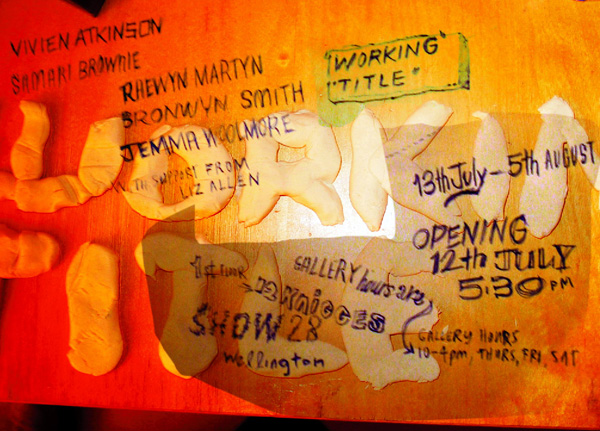 VIVIEN ATKINSON
SAMARI BROWNIE
RAEWYN MARTYN
BRONWYN SMITH
JEMMA WOOLMORE
WITH SUPPORT FROM
LIZ ALLEN
"WORKING"
"TITLE"
WORKIN
TITLE
13th July - 5th AUGUST
OPENING
12th JULY
5:30 PM
1st FLOOR
GALLERY hours are
SHOW 28
Wellington
GALLERY HOURS
10-4pm, THURS, FRI, SAT